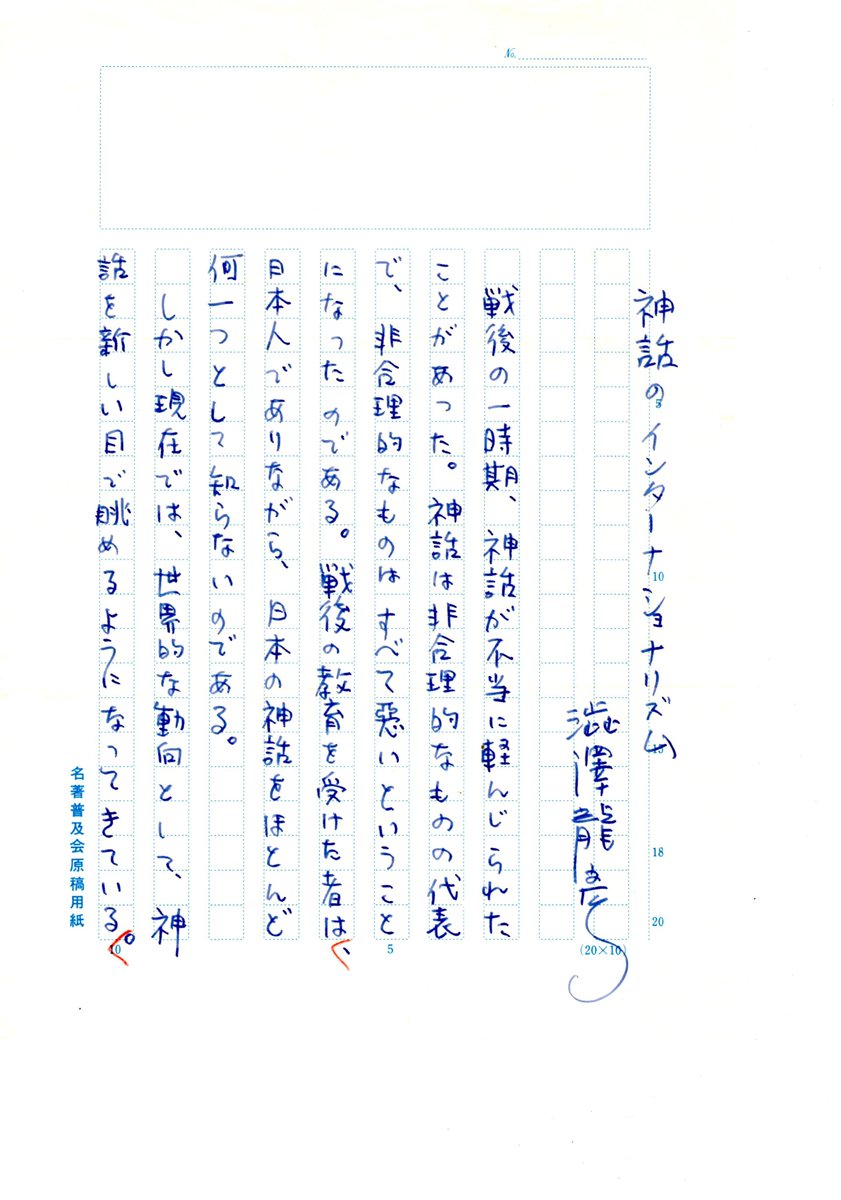 №
神話のインターナショナリズム
澁澤龍彦
戦後の一時期、神話が不当に軽んじられた
ことがあった。神話は非合理的なものの代表
で、非合理的なものはすべて悪いということ
になったのである。戦後の教育を受けた者は、
日本人でありながら、日本の神話をほとんど
何一つとして知らないのである。
しかし現在では、世界的な動向として、神
話を新しい目で眺めるようになってきている。
3
10
15
18
20
(20×10)
5
10
名著普及会原稿用紙